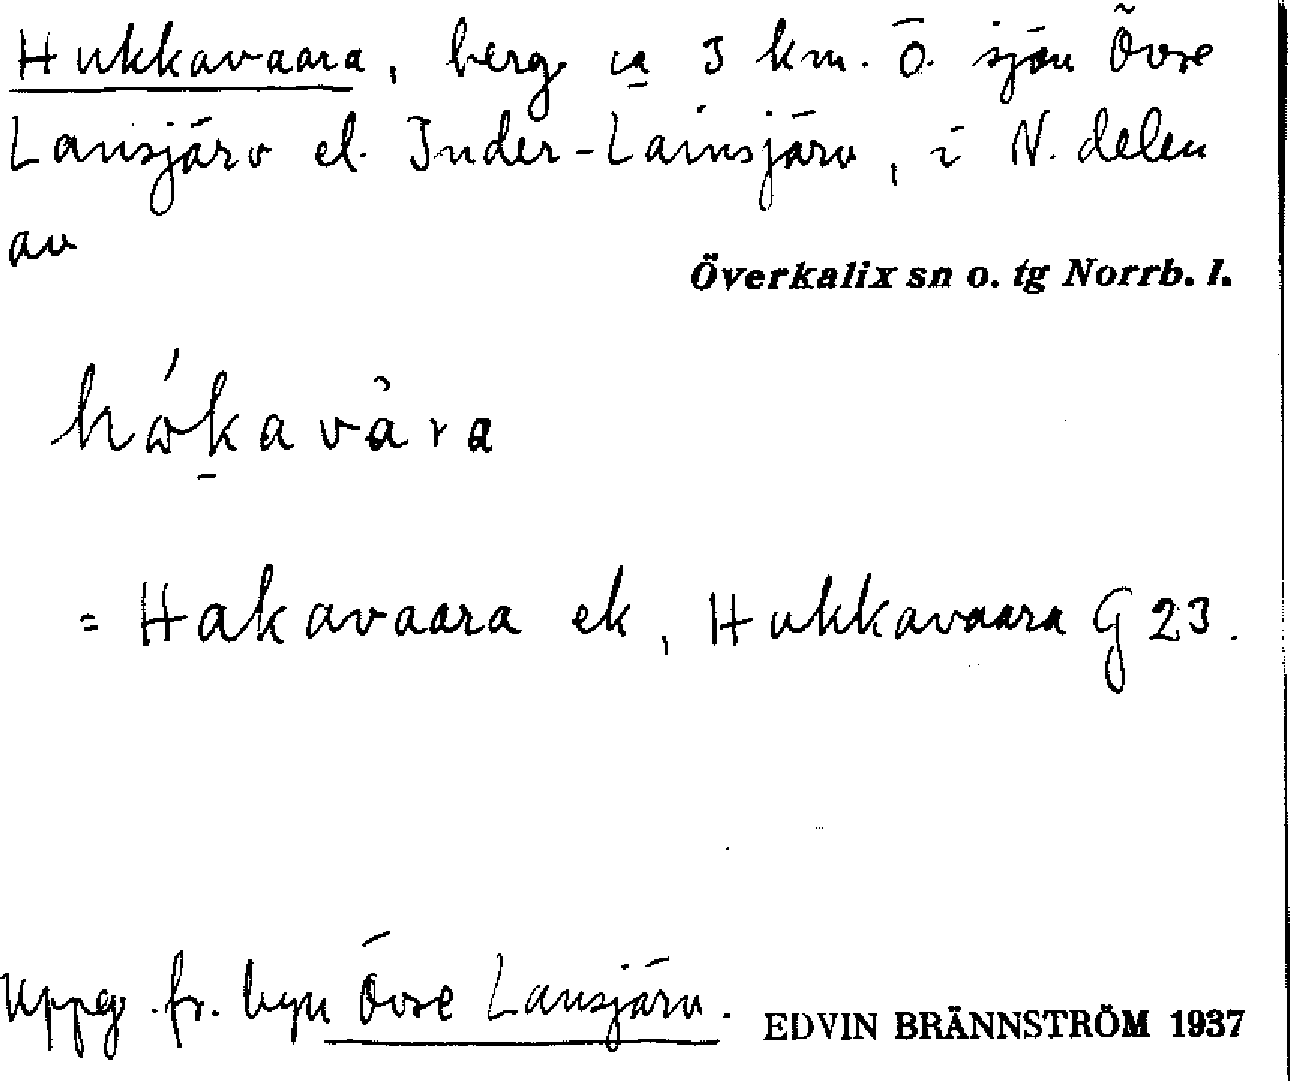 Hukkavaara, berg ca 3 km. Ö. sjön Övre
Lansjärv el. Inder-Lainsjärv, i N. delen
av
Överkalix sn o. tg Norrb. l.
= Hakavaara ek, Hukkavaara G 23.
Uppg. fr. byn Övre Lansjärv.
EDVIN BRÄNNSTRÖM 1937